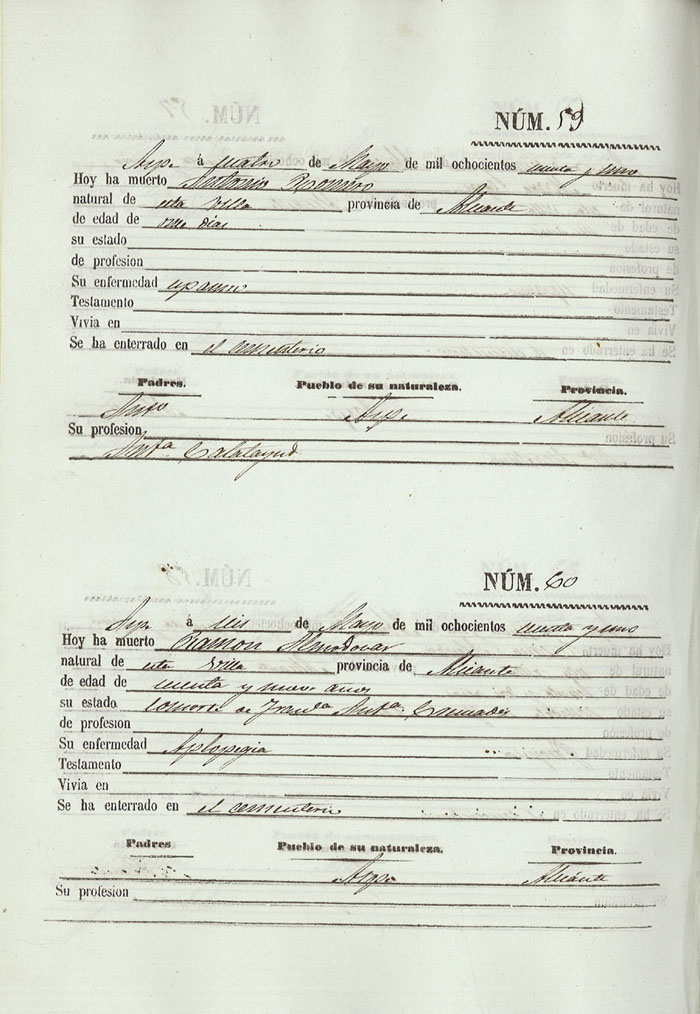 NÚM. 59
Aspe á cuatro de Mayo de mil ochocientos
Hoy ha muerto Antonio Romero
natural de esta Villa provincia de Alicante
de edad de once dias
su estado
de profesion
Su enfermedad espasmo
Testamento
Vivia en
Se ha enterrado en el cementerio
Padres. Pueblo de su naturaleza. Provincia.
Antº Aspe Alicante
Su profesion
Antª Calatayud
NÚM. 60
Aspe á seis de Mayo de mil ochocientos
Hoy ha muerto Ramon Almodovar
natural de esta Villa provincia de Alicante
de edad de y nueve años
su estado consorte de Antª
de profesion
Su enfermedad Aplopegia
Testamento
Vivia en
Se ha enterrado en el cementerio
Padres Pueblo de su naturaleza. Provincia.
Aspe Alicante
Su profesion